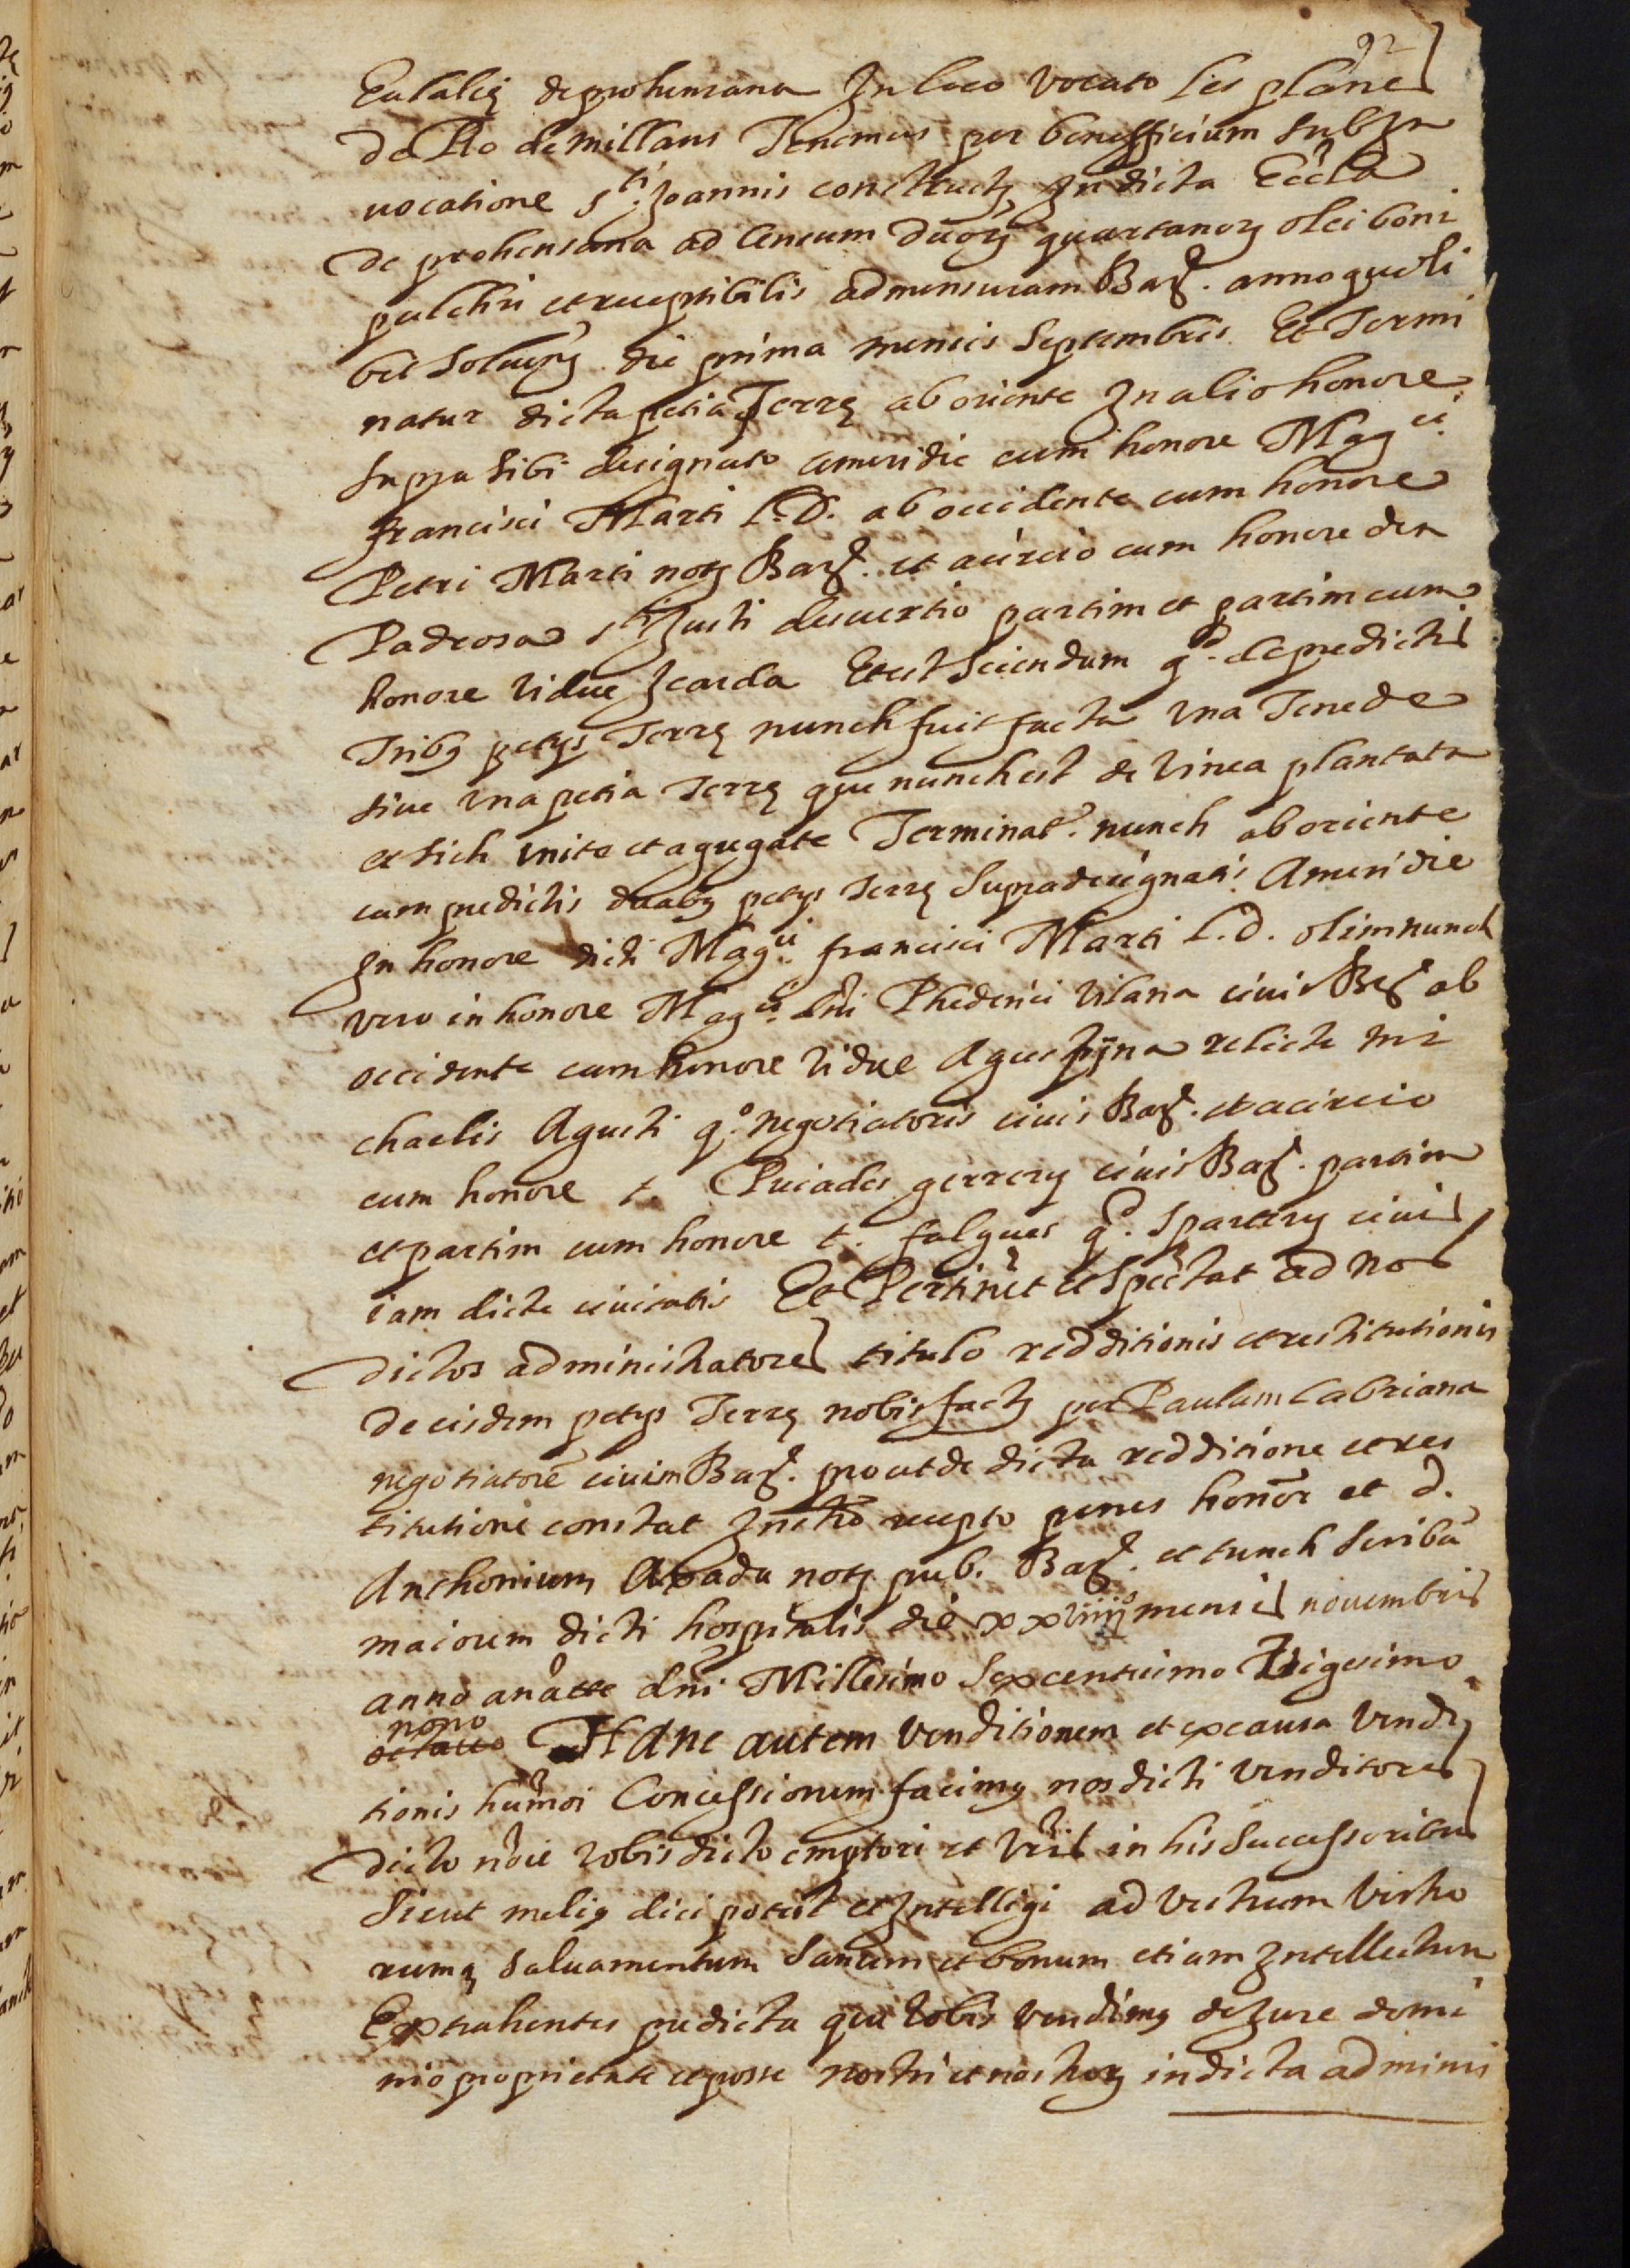 92
Eulaliȩ de prohensana In loco vocato les planes
de Pio de millans Tenemus per benefficium sub In
vocatione s.ti Joannis constructȝ In dicta Eccla
de prohensana ad Censum duorȝ quartanorȝ olei boni
pulchri et receptibilis ad mensuram Barȝ. anno quoli
bet soluenȝ die prima mensis Septembris Et Termi
natur dicta petia Terrȩ ab oriente In alio honore
supra sibi designato a meridie cum honore Mag.ci
francisci Marti l.D. ab occidente cum honore
Petri Marti notȝ Barȝ. et a circio cum honore den
Padrosa s.ti Justi desuertio partim et partim cum
honore vidue Jcarda Et est sciendum q.d de predictis
Tribȝ petys Terrȩ nunch fuit facta vna Tenede
siue vna petia Terrȩ que nunch est de vinea plantata
et sich vnite et agugate Terminat.r nunch ab oriente
cum predictis duabȝ petys Terrȩ supradesignatis A meridie
In honore dicti Mag.ci francisci Marti l.d. olim nunch
vero in honore Mag.ci dñi Phederici Vilana ciuis Barȝ ab
occidente cum honore vidue Agustyna relicte mi
chaelis Agusti q.o negotiatoris ciuis Barȝ. et a circio
cum honore t. Puiades gerrery ciuis Barȝ. partim
et partim cum honore t. falgues q.o spartery ciuis
iam dicte ciuitatis Et Pertinet et spectat ad nos
dictos administratores titulo redditionis et restitutionis
de eisdem petys Terrȩ nobis factȝ per Paulum Cabriana
negotiatorē ciuim Barȝ. prout de dicta redditione et res
titutione constat Instrō recepto penes honor et d.
Anthonium Axada notȝ pub. Barȝ. et tunch scribā
maiorem dicti hospitalis die xxviiijo mensis novembris
anno a natte dñi Millesimo Sexcentesimo Trigesimo
nono
octauo Hanc autem venditionem et ex causa vendi
tionis hūmoi Concessionem facimȝ nos dicti venditores
dicto noīe vobis dicto emptori et vrīs in his successoribus
Sicut meliȝ dici potest et Intelligi ad vestrum vestro
rumqȝ saluamentum sanum et bonum etiam Intellectum
Extrahentes predicta que vobis vendimȝ de Jure domi
nio proprietate et posse nostri et nostrorȝ in dicta adminis